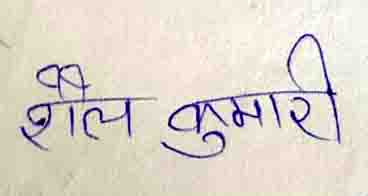 शैल कुमारी